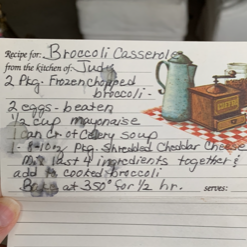 Recipe for: Broccoli Casserole
from the kitchen of: Judy
2 Pkg. Frozen chopped
broccoli -
2 eggs - beaten
1/2 cup mayonaise
1 can Cr. of Celery soup
1 - 8-10 oz Pkg. Shredded Cheddar Cheese
Mix last 4 ingredients together &
add to cooked broccoli
Bake at 350° for 1/2 hr.
serves: